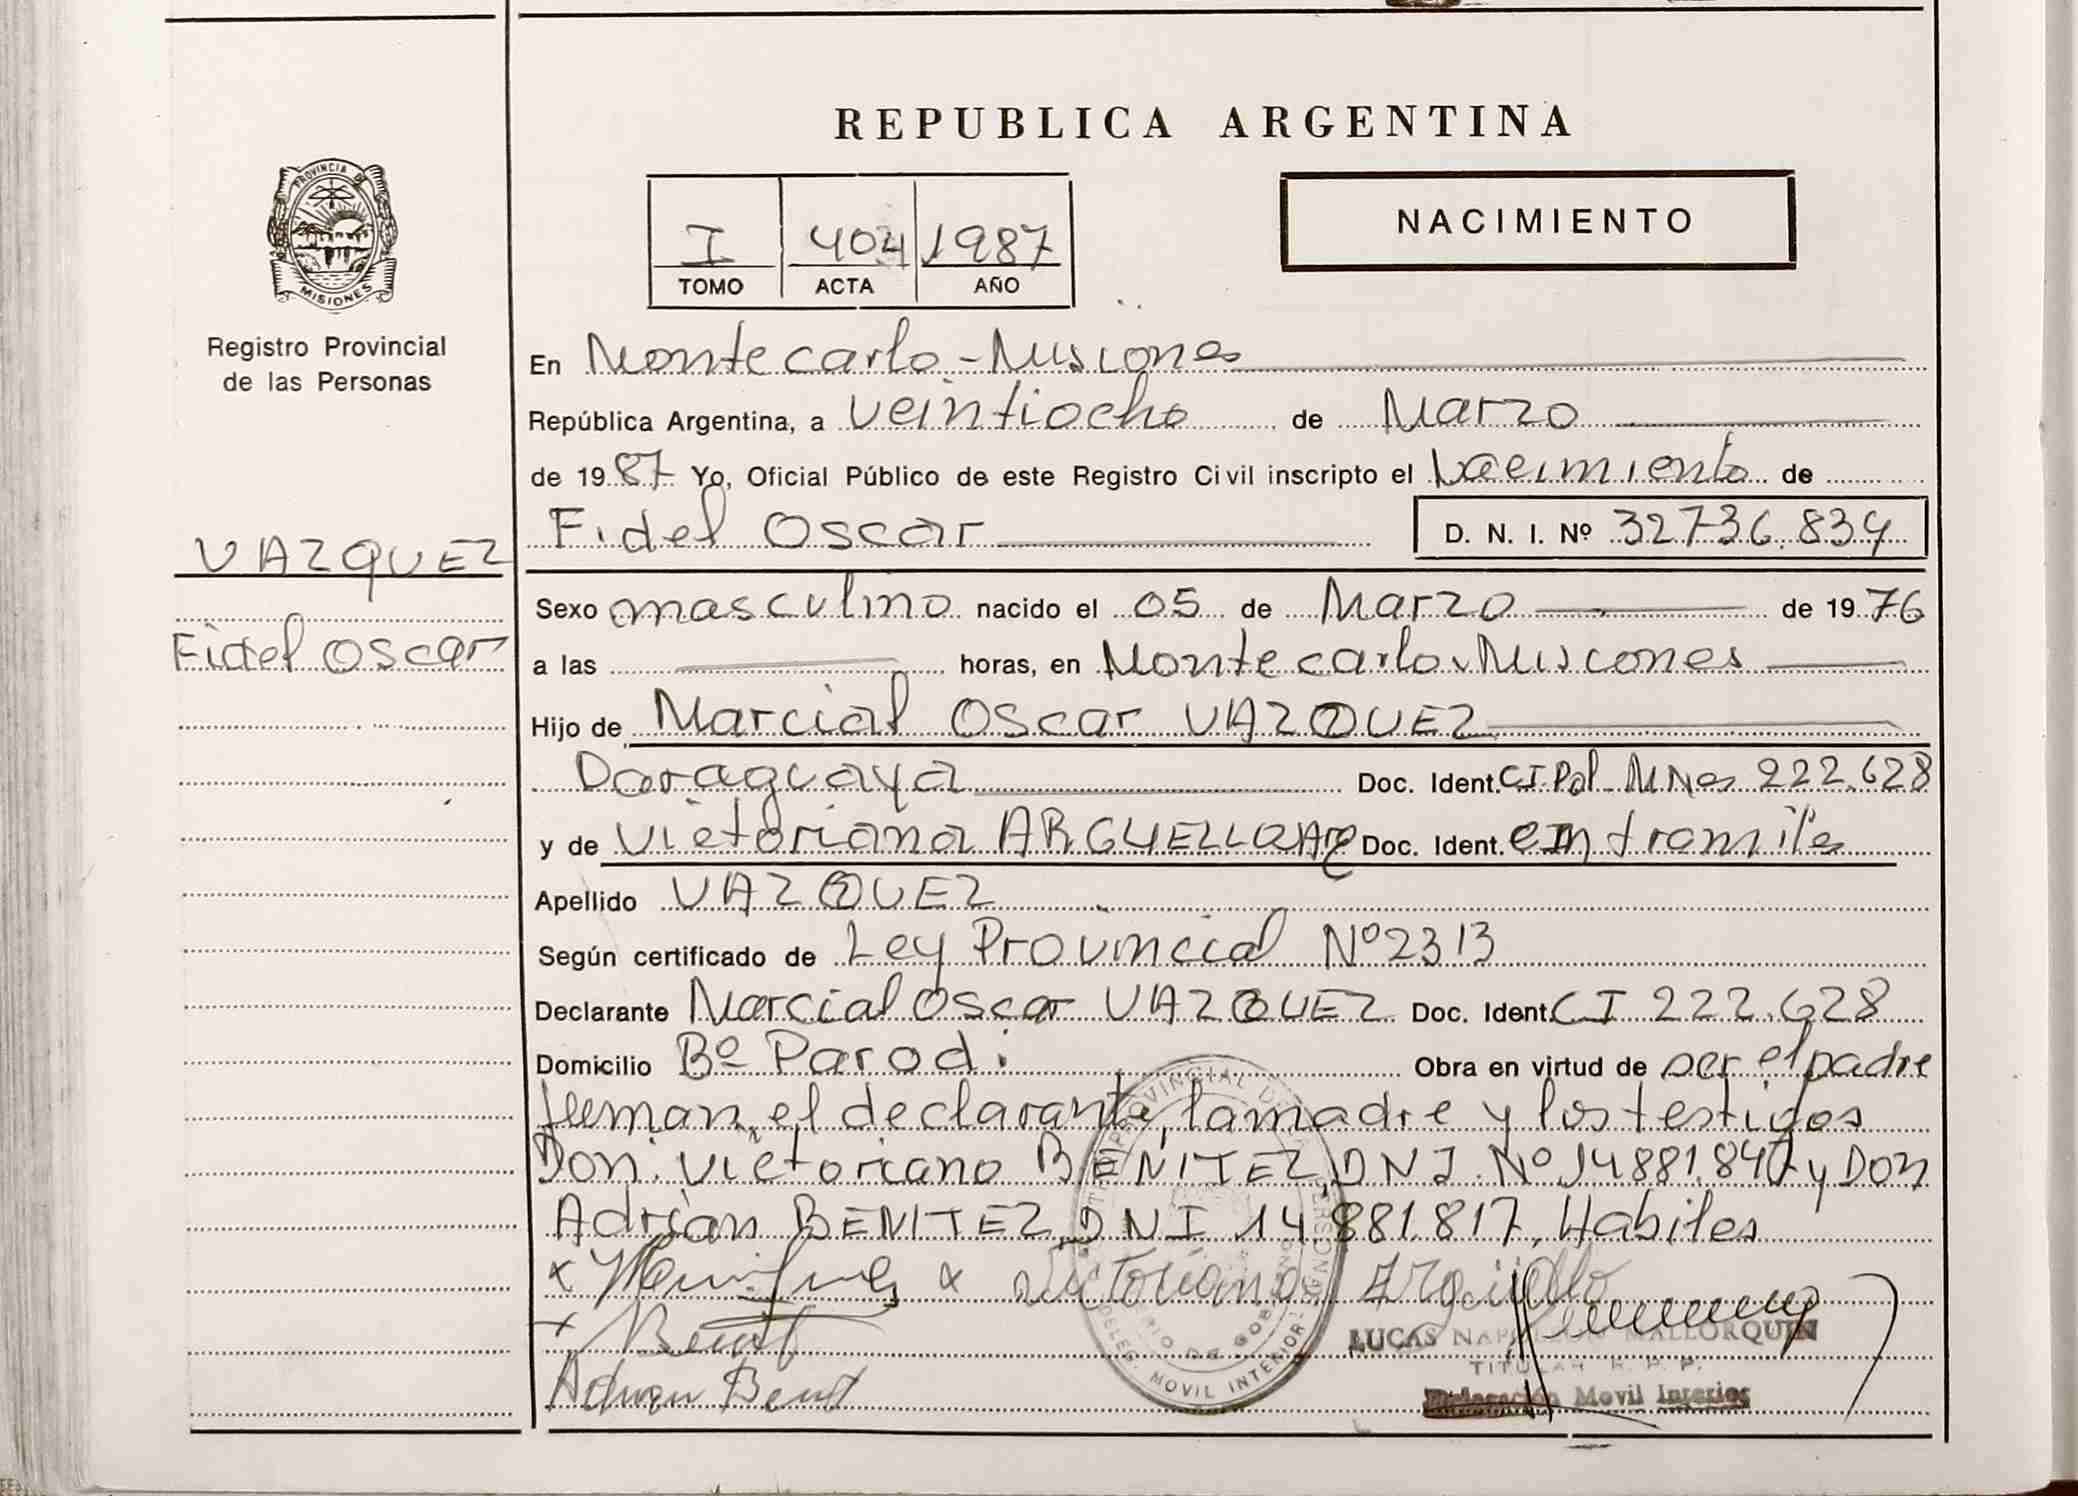 REPUBLICA ARGENTINA
PROVINCIA DE
MISIONES
Registro Provincial
de las Personas
I 404 1987
TOMO ACTA AÑO
NACIMIENTO
En Montecarlo - Misiones
República Argentina, a veintiocho de Marzo
de 1987 Yo, Oficial Público de este Registro Civil inscripto el Nacimiento de
Fidel Oscar D. N. I. Nº 32736.834
VAZQUEZ
Fidel Oscar
Sexo masculino nacido el 05 de Marzo de 1976
a las horas, en Montecarlo Misiones
Hijo de Marcial Oscar VAZQUEZ
Paraguaya Doc. Ident. CI. Pol. MNes 222.628
y de Victoriana ARGUELLO Doc. Ident. en tramites
Apellido VAZQUEZ
Según certificado de Ley Provincial Nº 2313
Declarante Marcial Oscar VAZQUEZ Doc. Ident. CI 222.628
Domicilio Bº Parodi Obra en virtud de ser el padre
Firman, el declarante, la madre y los testigos
Don. Victoriano BENITEZ, DNI. Nº 14881.847 y Don
Adrian BENITEZ, DNI 14.881.817, Habiles
x x Victoriana Argüello
x Benit
Adrian Benit
LUCAS NAPOLEON MALLORQUIN
TITULAR R. P. P.
Delegación Movil Interior
MOVIL INTERIOR